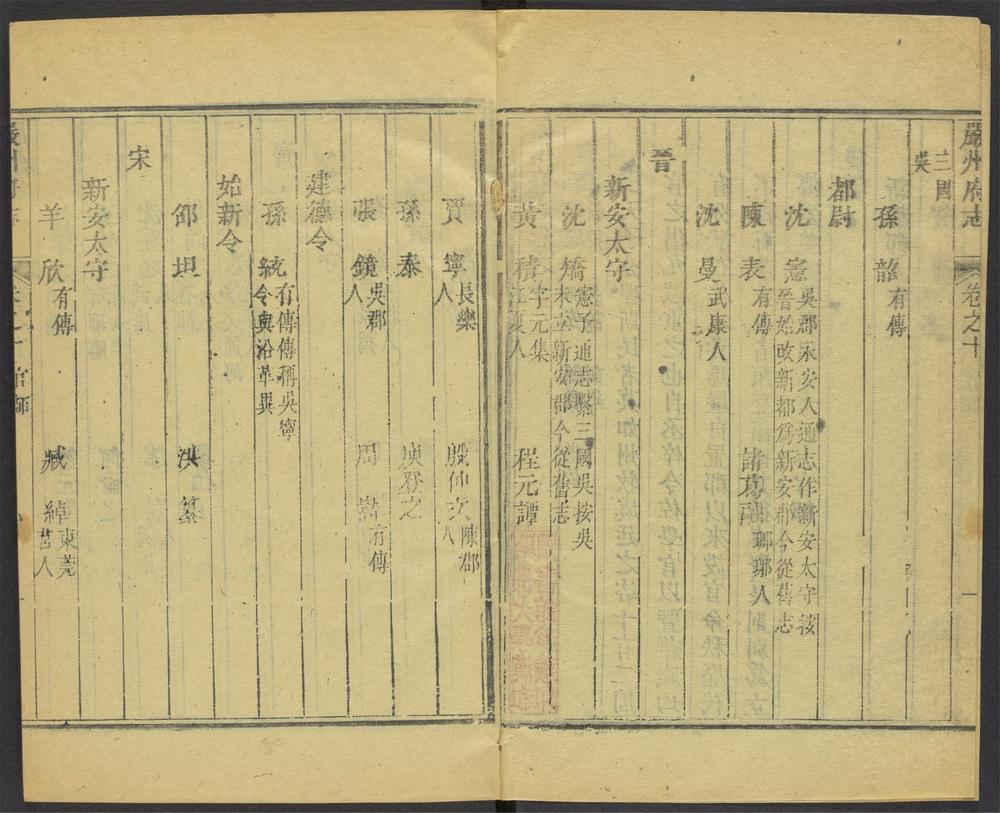 嚴州府志 卷之十 一
三國
吳
孫韶 有傳
都尉
沈憲 吳郡永安人通志作新安太守按晉始改新都爲新安郡今從舊志
陳表 有傳 諸葛 瑯琊人
沈曼 武康人
晉
新安太守
沈矯 憲子通志繫三國吳按吳未立新安郡今從舊志
黃積 字元集江夏人 程元譚
賈寧 長樂人 殷仲文 陳郡人
孫泰 庾登之
張鏡 吳郡人 周 有傳
建德令
孫統 有傳傳稱吳寧令與沿革異
始新令
邵坦 洪纂
宋
新安太守
羊欣 有傳 臧綽 東莞莒人